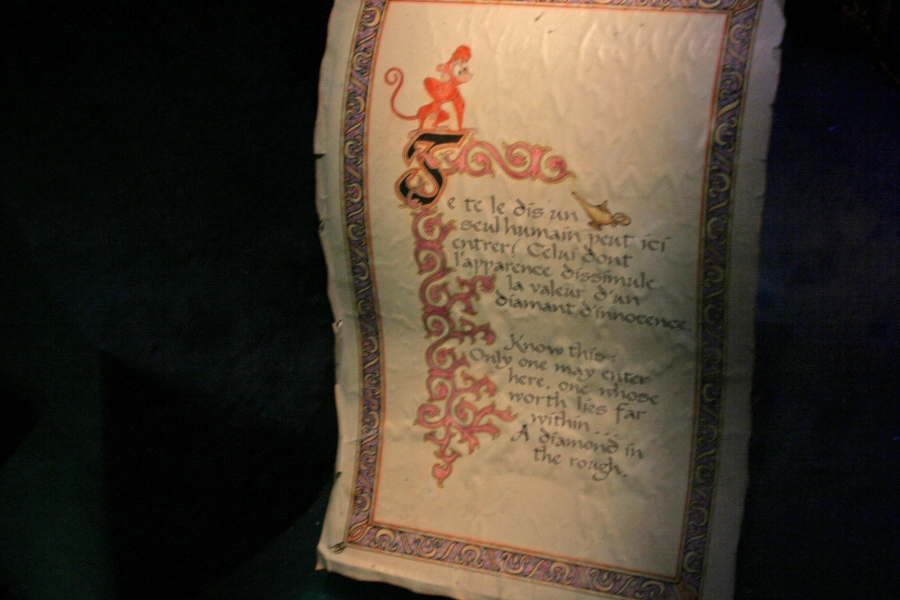 Je te le dis un
seul humain peut ici
entrer! Celui dont
l'apparence dissimule
la valeur d'un
diamant d'innocence.
Know this:
Only one may enter
here, one whose
worth lies far
within...
A diamond in
the rough.